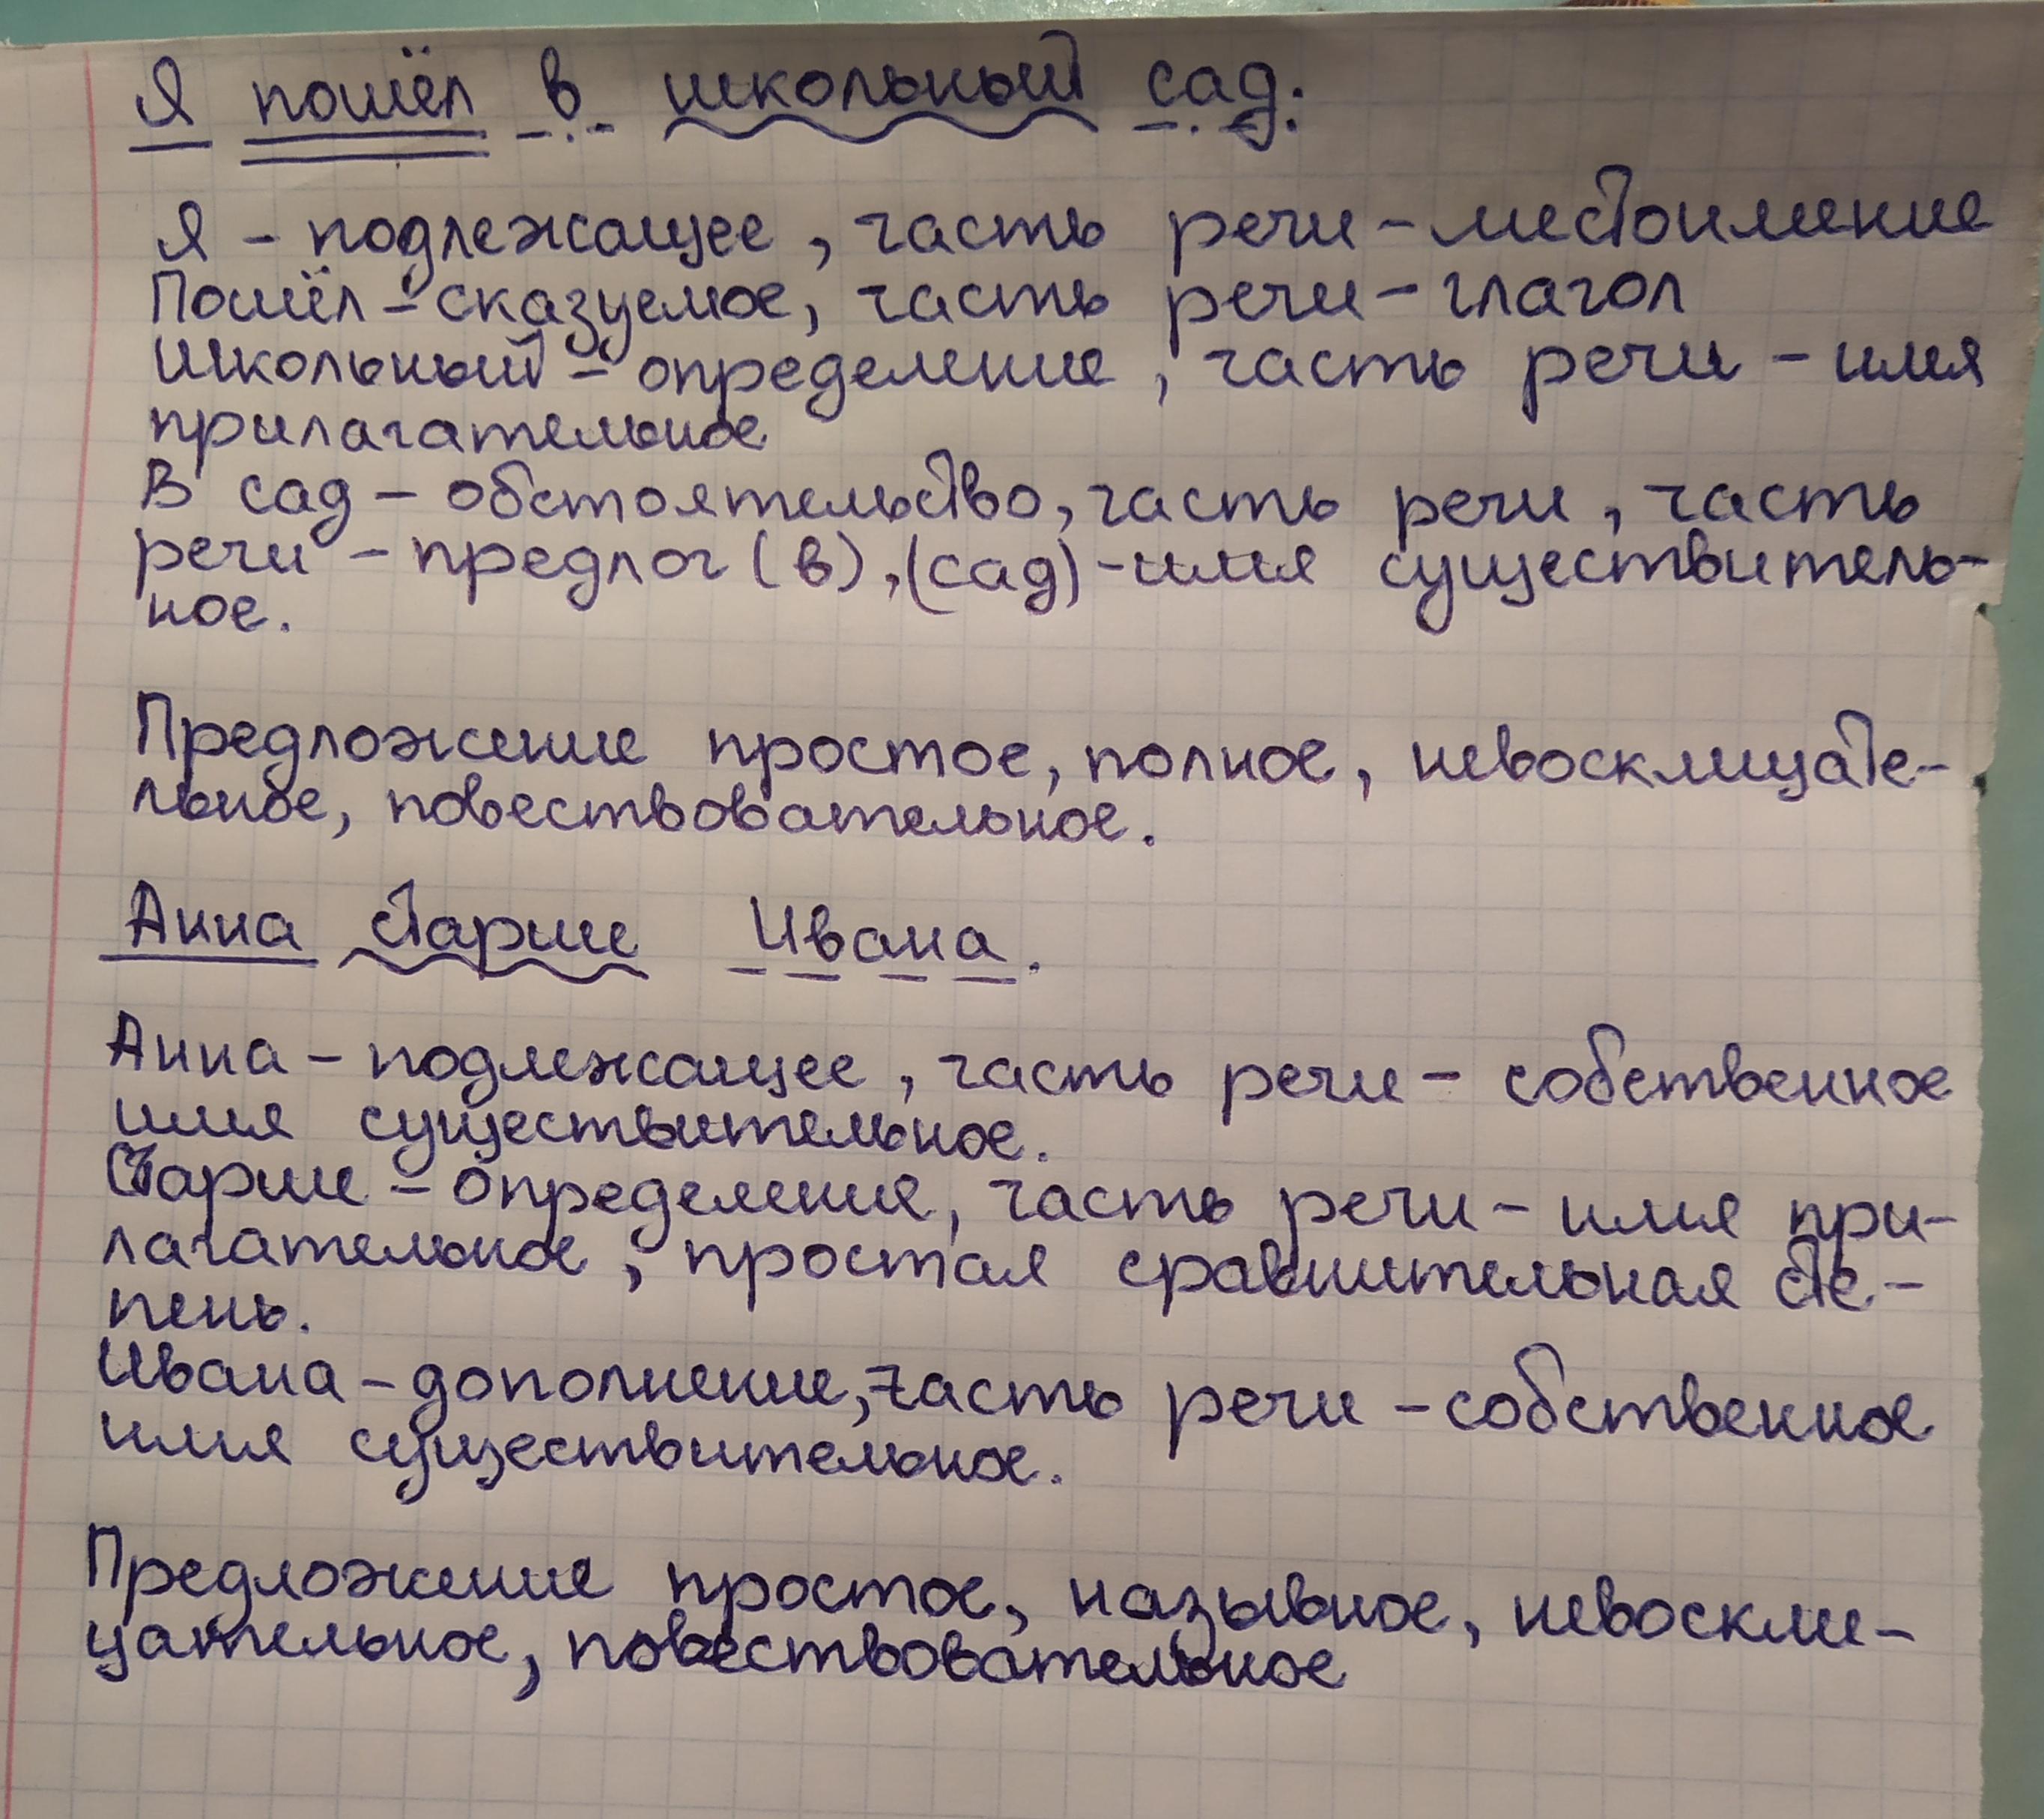 Я пошёл в школьный сад.
Я – подлежащее, часть речи – местоимение
Пошёл – сказуемое, часть речи – глагол
Школьный – определение, часть речи – имя
прилагательное
В сад – обстоятельство, часть речи, часть
речи – предлог (в), (сад) - имя существитель-
ное.
Предложение простое, полное, невосклицате-
льное, повествовательное.
Анна старше Ивана.
Анна – подлежащее, часть речи – собственное
имя существительное.
Старше – определение, часть речи – имя при-
лагательное, простая сравнительная сте-
пень.
Ивана – дополнение, часть речи – собственное
имя существительное.
Предложение простое, назывное, невоскли-
цательное, повествовательное